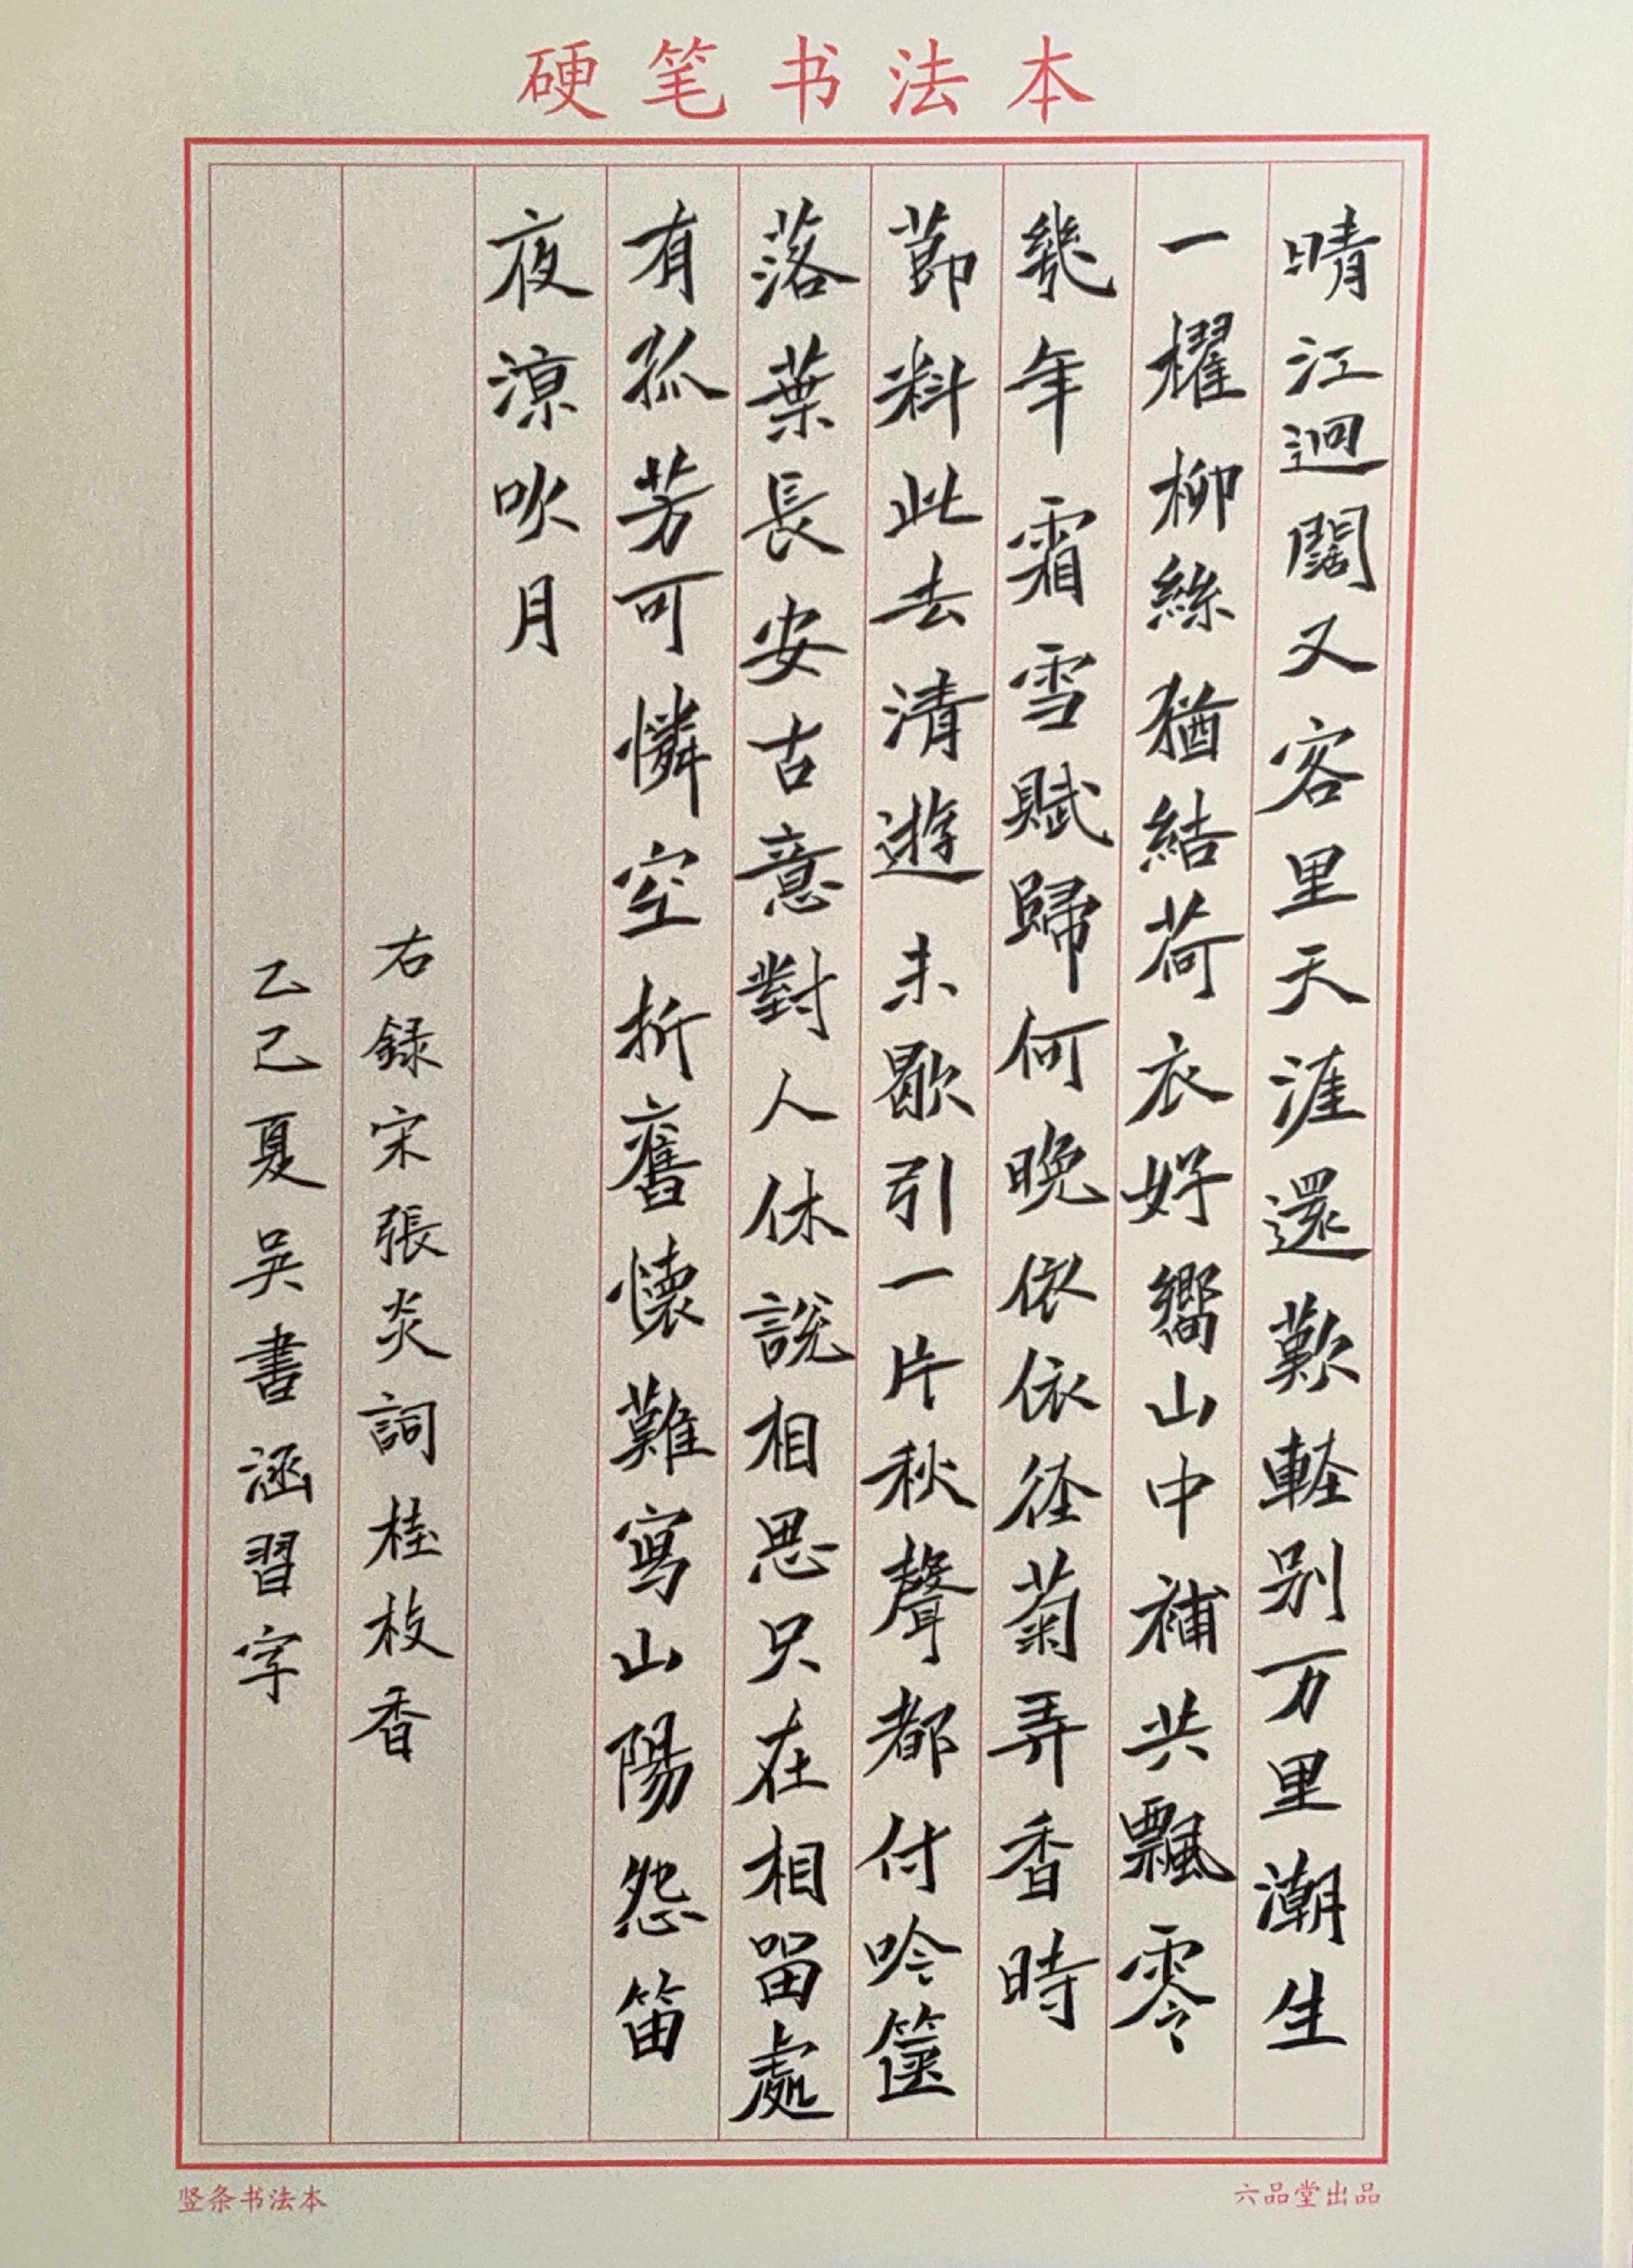 硬笔书法本
晴江迥闊又客里天涯還歎軽别万里潮生
一櫂柳絲猶結荷衣好嚮山中補共飄零
幾年霜雪賦歸何晚依依径菊弄香時
節料此去清遊未歇引一片秋聲都付吟篋
落葉長安古意對人休説相思只在相留處
有孤芳可憐空折舊懷難寫山陽怨笛
夜涼吹月
右録宋張炎詞桂枝香
乙巳夏吴書涵習字
竖条书法本
六品堂出品